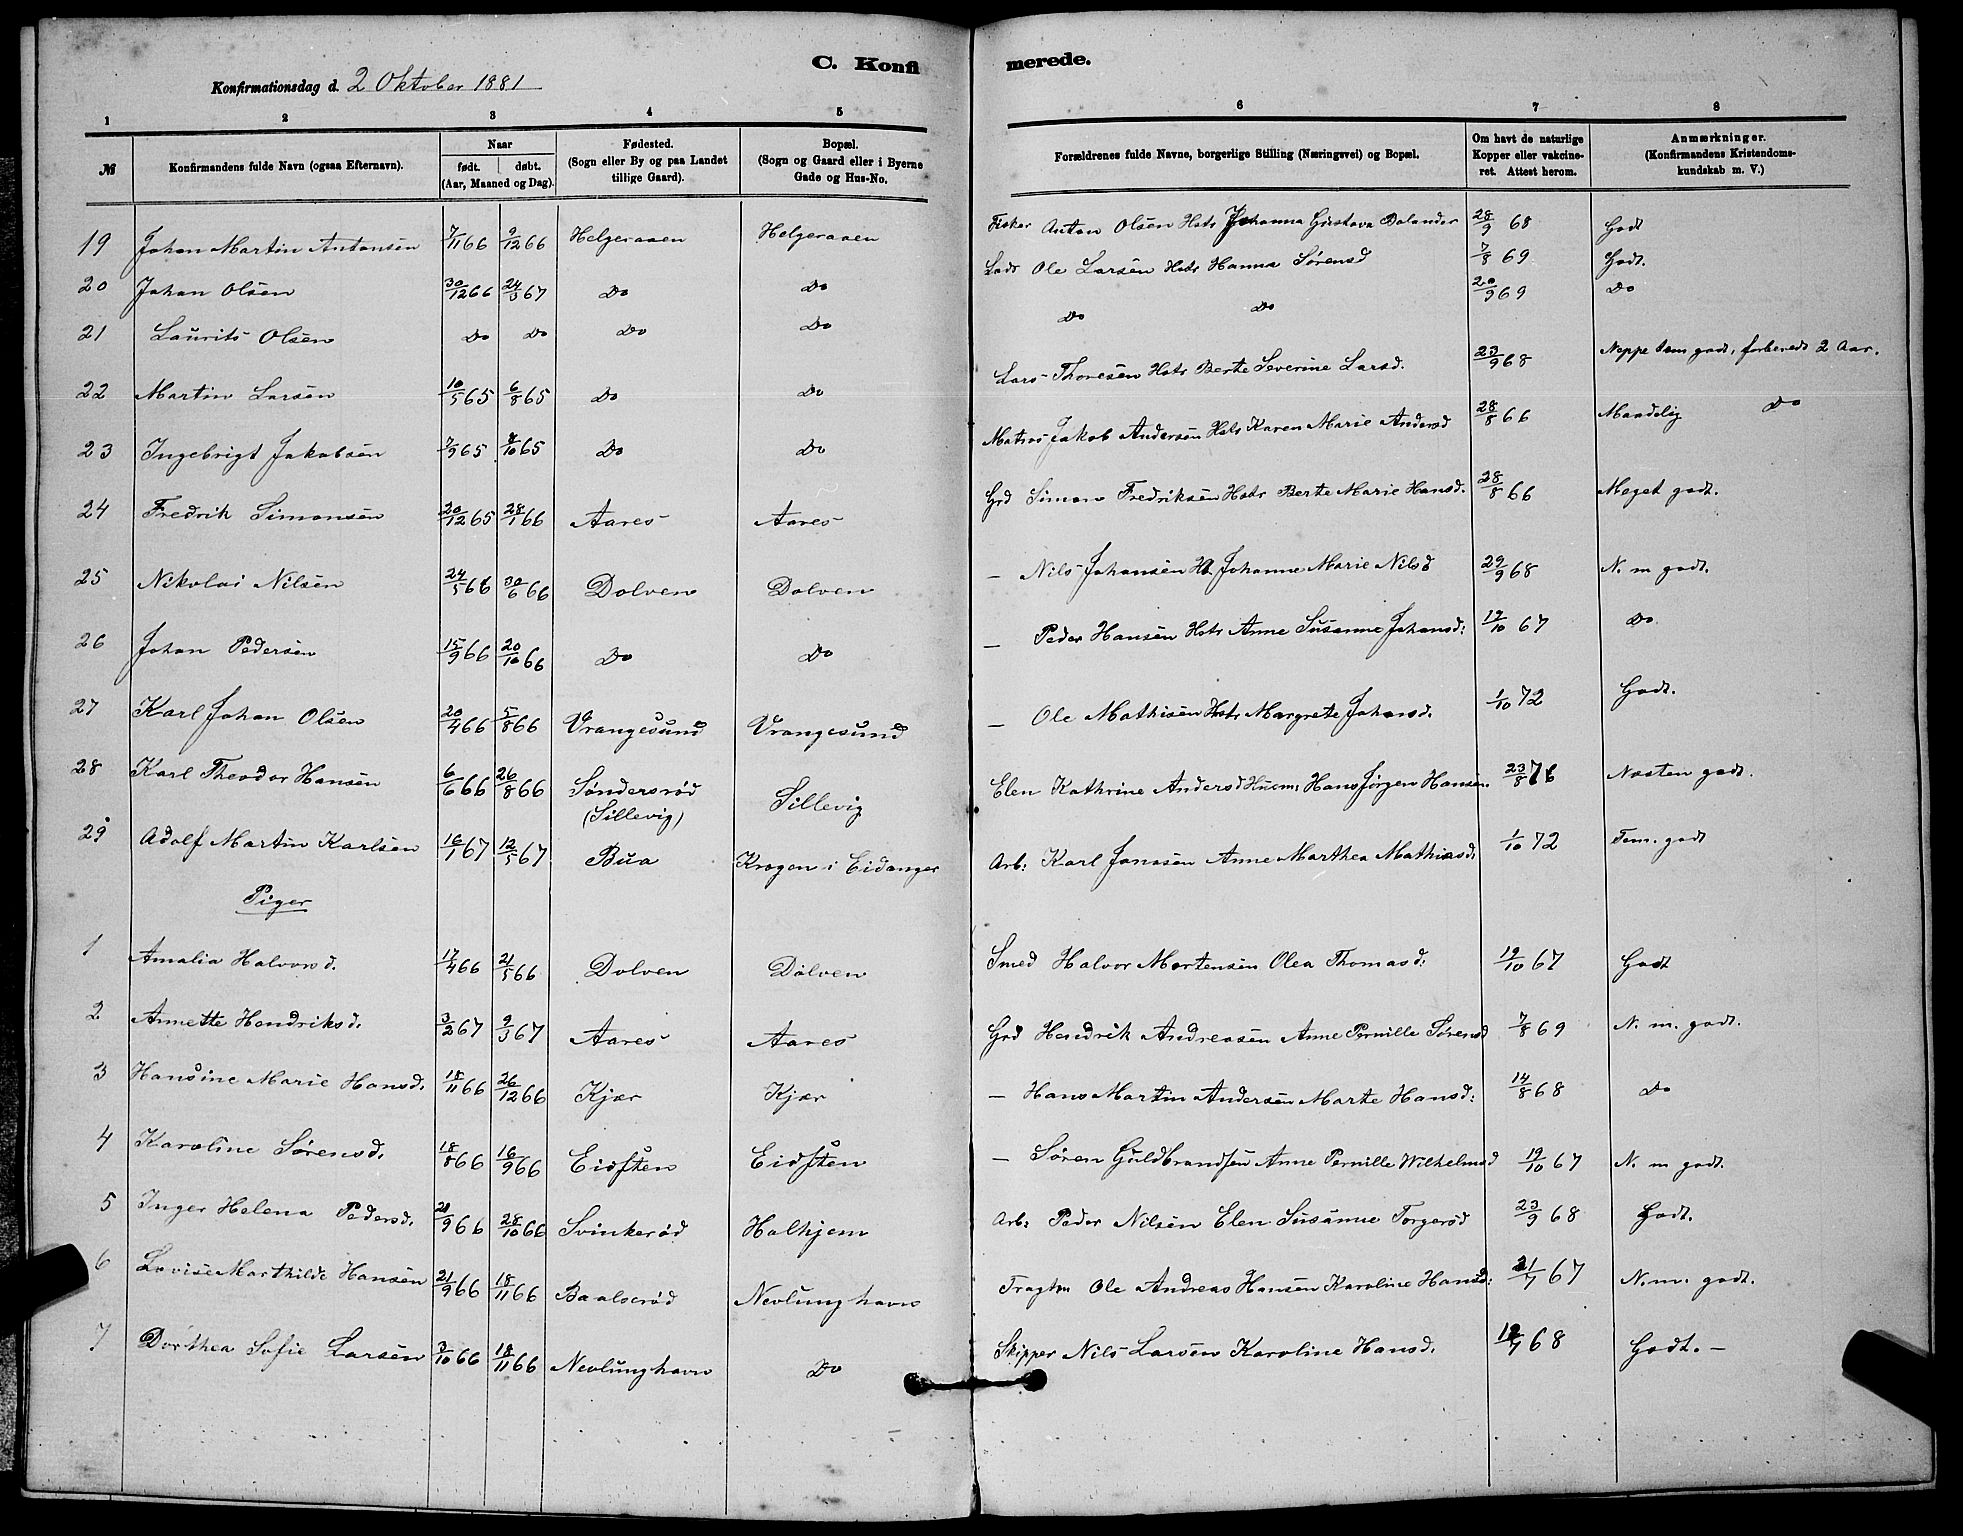 C. Konfirmerede.
Konfirmationsdag d. 2 Oktober 1881
1 2 3 4 5 6 7 8
№ | Konfirmandens fulde Navn (ogsaa Efternavn). | Naar født. døbt. (Aar, Maaned og Dag). | Fødested. (Sogn eller By og paa Landet tillige Gaard). | Bopæl. (Sogn og Gaard eller i Byerne Gade og Hus-No. | Forældrenes fulde Navne, borgerlige Stilling (Næringsvei) og Bopæl. | Om havt de naturlige Kopper eller vakcineret. Attest herom. | Anmærkninger. (Konfirmandens Kristendomskundskab m. V.)
19 Johan Martin Antonsen 7/11 66 9/12 66 Helgeraaen Helgeraaen Fisker Anton Olsen Hstr Johanna Gustava Bolander 28/9 68 Godt
20 Johan Olsen 30/12 66 24/3 67 Do Do Lods Ole Larsen Hstr Hanna Sørensd 7/8 69 Godt.
21 Laurits Olsen Do Do Do Do Do Do 20/9 69 Do
22 Martin Larsen 10/5 65 6/8 65 Do Do Lars Thoresen Hstr Berte Severine Larsd. 23/9 68 Neppe tem godt, forberedt 2 Aar.
23 Ingebrigt Jakobsen 7/9 65 8/10 65 Do Do Matros Jakob Andersen Hstr Karen Marie Andersd 28/8 66 Maadelig Do
24 Fredrik Simonsen 20/12 65 28/1 66 Aares Aares Grd Simon Fredriksen Hstr Berte Marie Hansd. 28/8 66 Meget godt.
25 Nikolai Nilsen 24/5 66 30/6 66 Dolven Dolven — Nils Johansen H. Johanne Marie Nilsd 29/9 68 N. m godt.
26 Johan Pedersen 15/9 66 20/10 66 Do Do — Peder Hansen Hstr Anne Susanne Johansd: 19/10 67 Do
27 Karl Johan Olsen 20/4 66 5/8 66 Vrangesund Vrangesund — Ole Mathisen Hstr Margrete Johansd. 1/10 72 Godt.
28 Karl Theodor Hansen 6/6 66 26/8 66 Søndersrød (Sillevig) Sillevig Elen Kathrine Andersd Husm: Hans Jørgen Hansen. 23/8 76 Næsten godt.
29 Adolf Martin Karlsen 16/1 67 12/5 67 Bua Krogen i Eidanger Arb: Karl Jonasen Anne Marthea Mathiasd: 1/10 72 Tem. godt
Piger
1 Amalia Halvorsd. 17/4 66 21/5 66 Dolven Dolven Smed Halvor Mortensen Olea Thomasd: 19/10 67 Godt
2 Annette Hendriksd. 3/2 67 9/3 67 Aares Aares Grd Hendrik Andreasen Anne Pernille Sørensd 7/8 69 N. m. godt.
3 Hansine Marie Hansd. 18/11 66 26/12 66 Kjær Kjær — Hans Martin Andersen Marte Hansd: 14/8 68 Do
4 Karoline Sørensd. 18/8 66 16/9 66 Eidsten Eidsten — Søren Guldbrandsen Anne Pernille Wilhelmsd 19/10 67 N. m godt.
5 Inger Helena Pedersd. 21/9 66 28/10 66 Svinkerød Halhjem Arb: Peder Nilsen Elen Susanne Torgersd 23/9 68 Godt.
6 Lovise Marthilde Hansen 21/9 66 18/11 66 Baalsrød Nevlunghavn Tragtm Ole Andreas Hansen Karoline Hansd: 21/7 67 N. m. godt.
7 Dorthea Sofie Larsen 3/10 66 18/11 66 Nevlunghavn Do Skipper Nils Larsen Karoline Hansd. 18/7 68 Godt. —